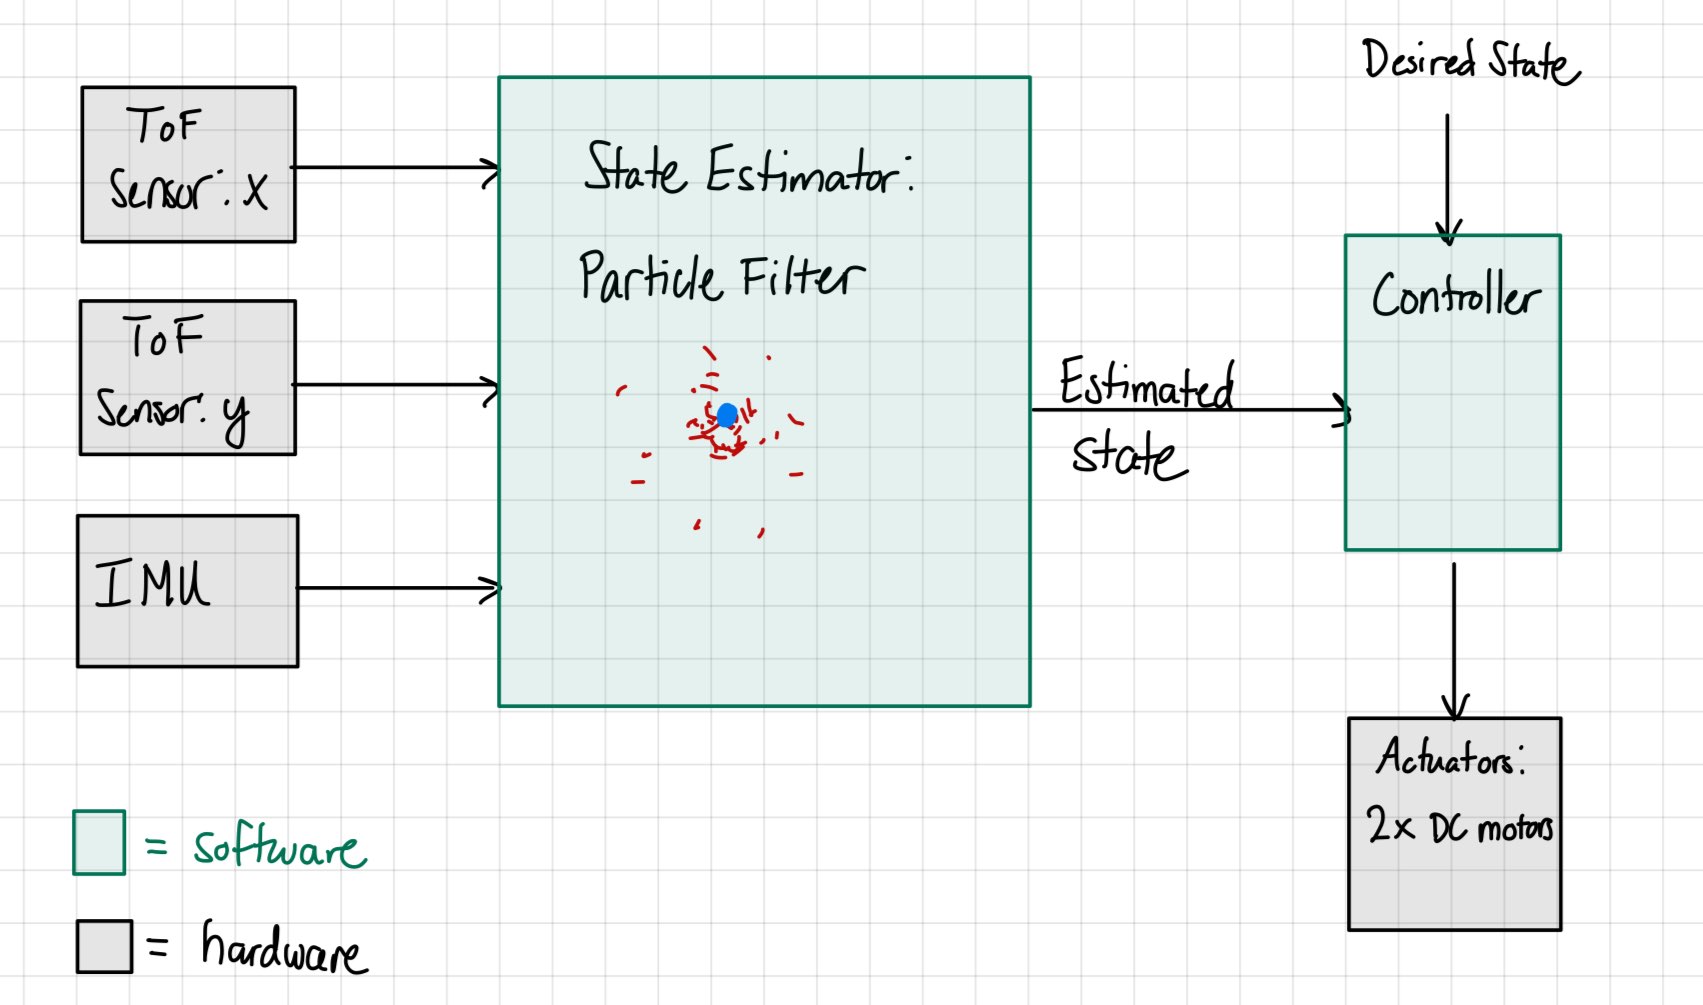 ToF
Sensor: X
ToF
Sensor: y
IMU
State Estimator:
Particle Filter
Estimated
State
Desired State
Controller
Actuators:
2x DC motors
= software
= hardware